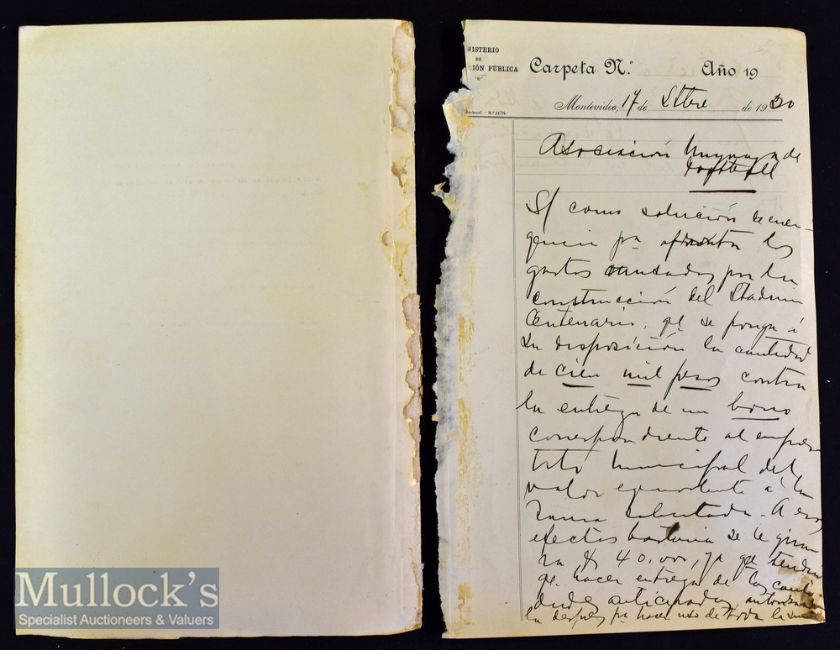 NISTERIO
DE
CIÓN PÚBLICA
Carpeta N.º Año 19
Montevideo, 17 de Stbre de 1930
Asociación Uruguaya de
Football
S/ como solución de emer-
gencia pa afronta los
gastos causados por la
construcción del Stadium
Centenario, qe se ponga á
su disposición la cantidad
de cien mil pesos contra
la entrega de un bono
correspondiente al emprés-
tito municipal del
valor equivalente á la
suma solicitada. A esos
efectos bastaría se le gira-
ra $ 40.000, ya que tendría
qe hacer entrega de las canti-
dades anticipadas
de toda la
Mullock's
Specialist Auctioneers & Valuers